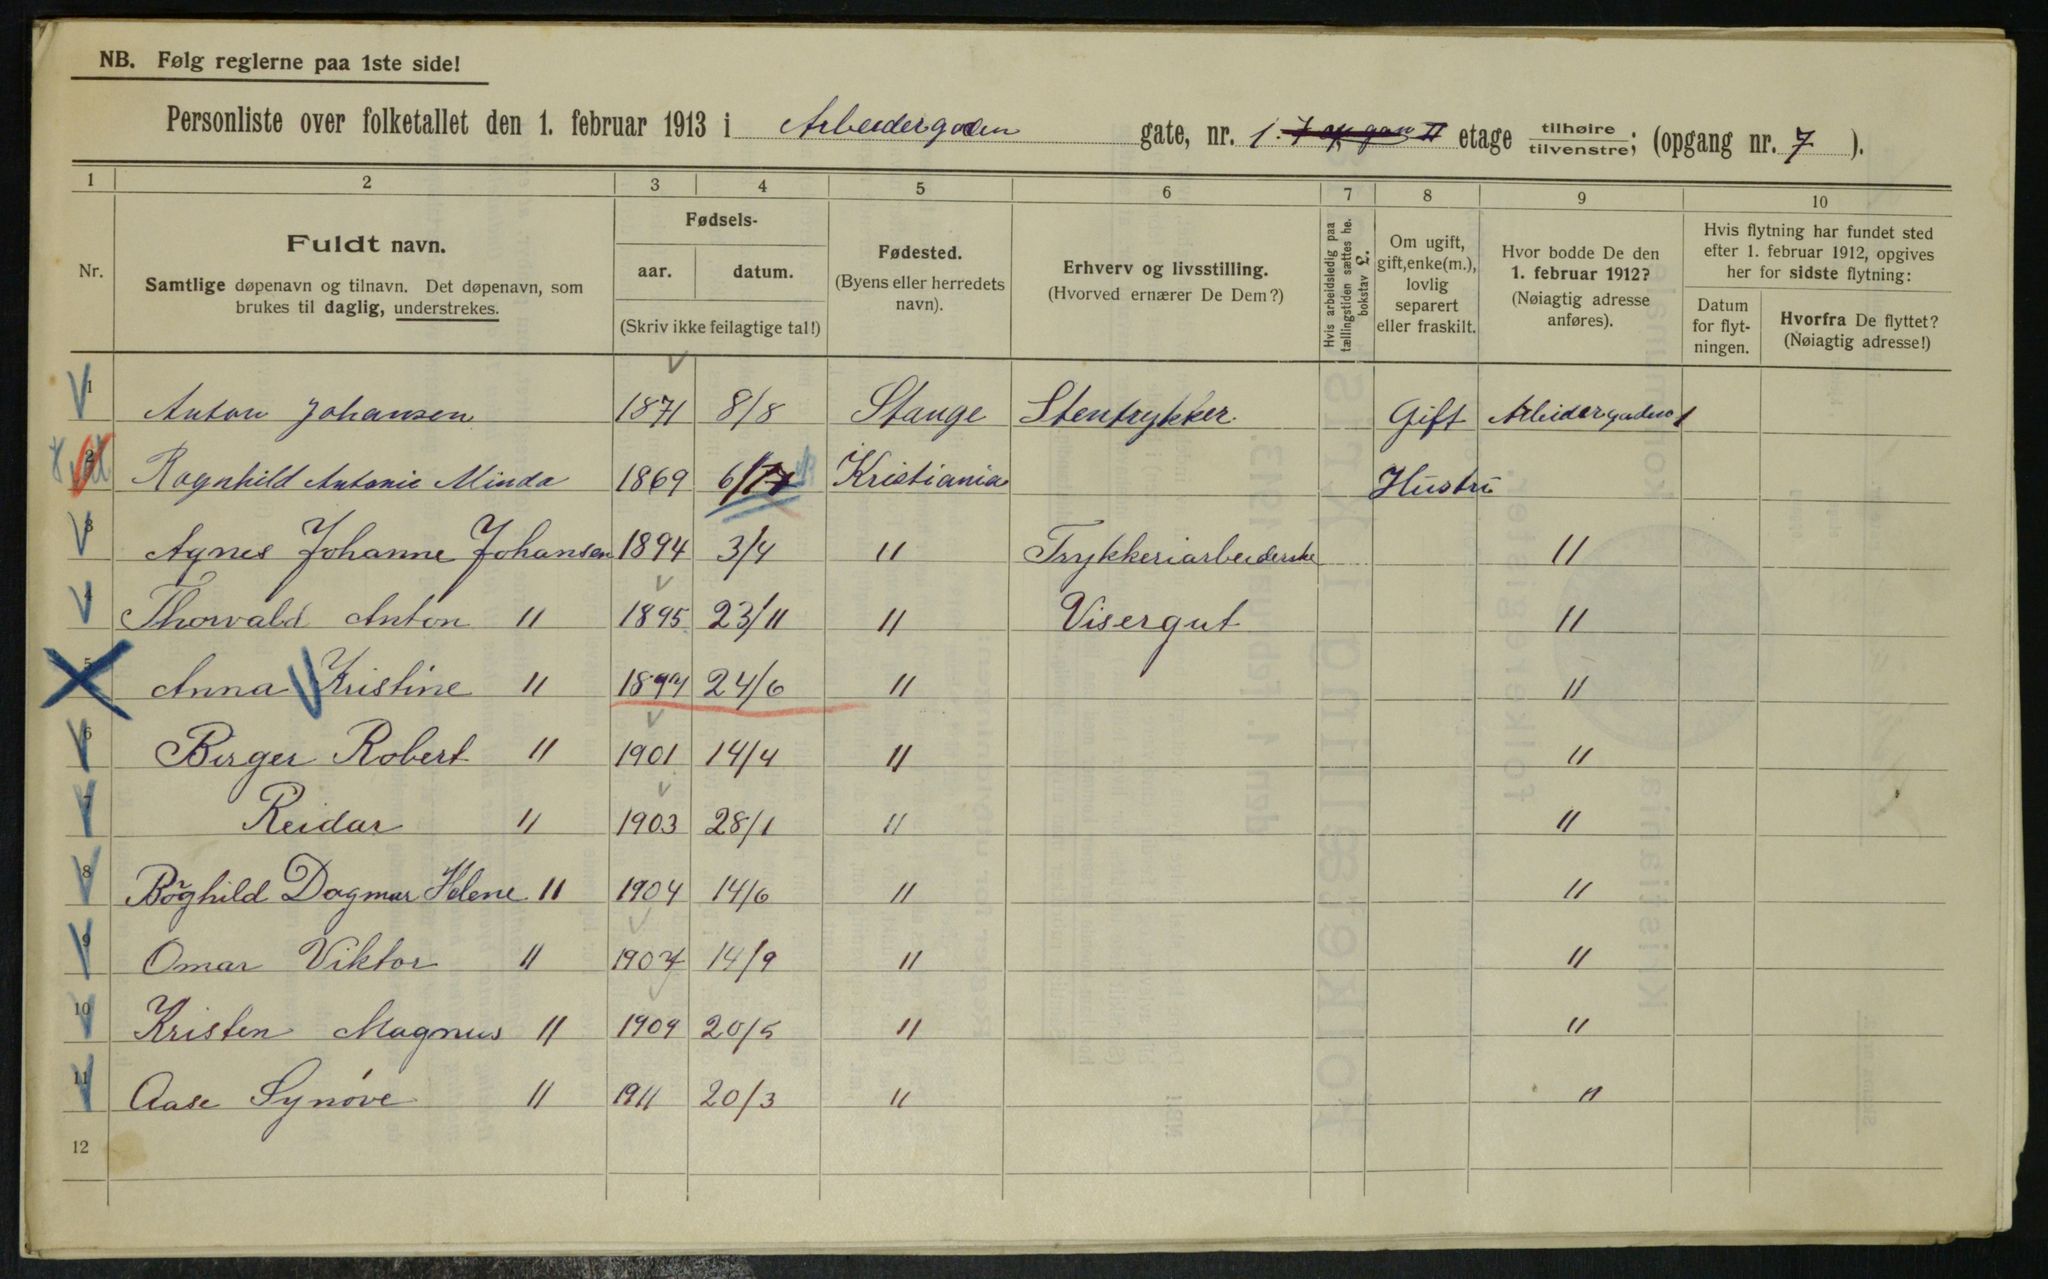 NB. Følg reglerne paa 1ste side!
Personliste over folketallet den 1. februar 1913 i Arbeidergaden gate, nr. 1. etage tilhøire tilvenstre; (opgang nr. 7 ).
1 2 3 4 5 6 7 8 9 10
Nr.
Fuldt navn.
Samtlige døpenavn og tilnavn. Det døpenavn, som
brukes til daglig, understrekes.
Fødsels-
aar. datum.
(Skriv ikke feilagtige tal!)
Fødested.
(Byens eller herredets
navn).
Erhverv og livsstilling.
(Hvorved ernærer De Dem?)
Hvis arbeidsledig paa
tællingstiden sættes he.
bokstav l.
Om ugift,
gift, enke(m.),
lovlig
separert
eller fraskilt.
Hvor bodde De den
1. februar 1912?
(Nøiagtig adresse
anføres).
Hvis flytning har fundet sted
efter 1. februar 1912, opgives
her for sidste flytning:
Datum
for flyt-
ningen.
Hvorfra De flyttet?
(Nøiagtig adresse!)
1 Anton Johansen 1871 8/8 Stange Stentrykker. Gift Arbeidergaden 1
2 Ragnhild Antonie Minda 1869 Kristiania Hustru
3 Agnes Johanne Johansen 1894 3/4 " Trykkeriarbeiderske "
4 Thorvald Anton " 1895 23/11 " Visergut "
5 Anna Kristine " 1897 24/6 " "
6 Birger Robert " 1901 14/4 " "
7 Reidar " 1903 28/1 " "
8 Borghild Dagmar Helene " 1904 14/6 " "
9 Omar Viktor " 1907 14/9 " "
10 Kristen Magnus " 1909 20/5 " "
11 Aase Synøve " 1911 20/3 " "
12